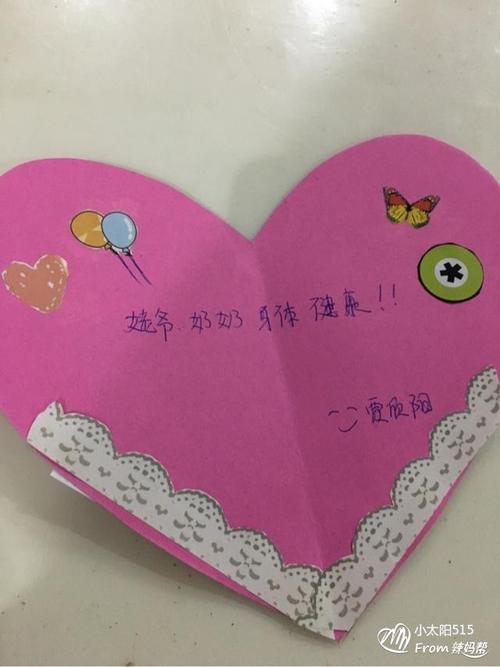 姥爷.奶奶 身体 健康!!
贾欣阳
小太阳515
From 辣妈帮